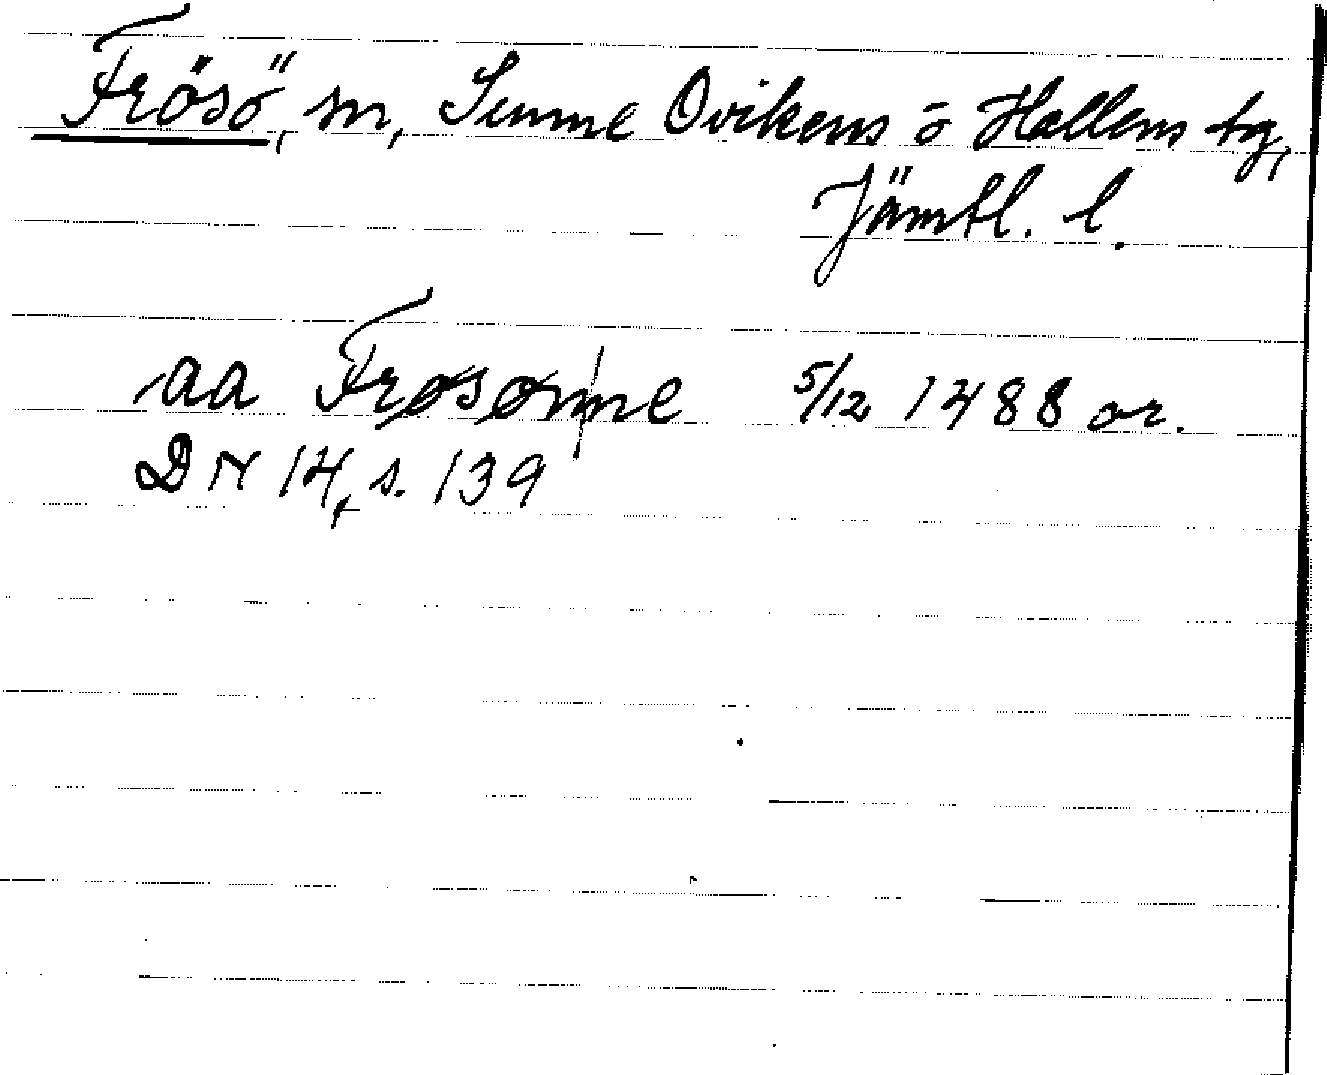 Frösö, sn, Sunne Ovikens o Hallens tg,
Jämtl. l.
aa Frøsøn|ne 5/12 1488 or.
DN 14, s. 139